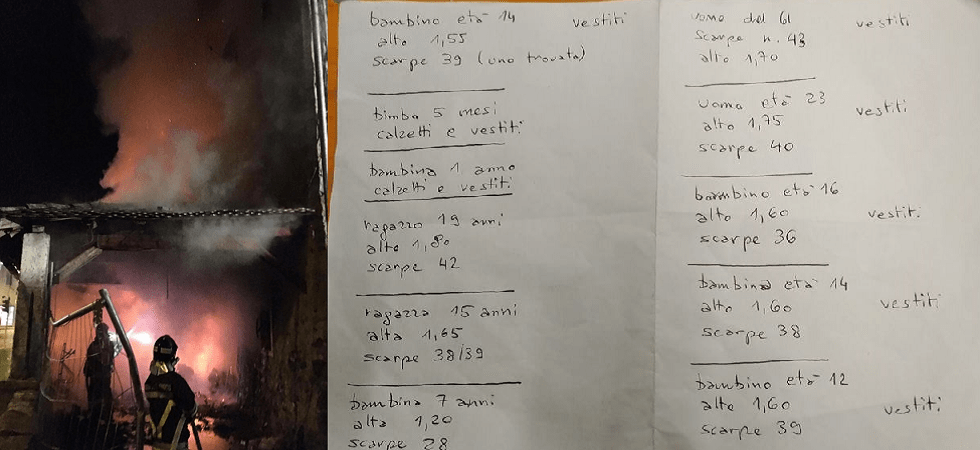 bambino età 14 vestiti
alto 1,55
scarpe 39 (uno trovata)
bimba 5 mesi
calzetti e vestiti
bambina 1 anno
calzetti e vestiti
ragazzo 19 anni
alto 1,80
scarpe 42
ragazza 15 anni
alta 1,65
scarpe 38/39
bambina 7 anni
alta 1,20
scarpe 28
uomo del 61 vestiti
scarpe n. 43
alto 1,70
uomo età 23 vestiti
alto 1,75
scarpe 40
bambino età 16
alto 1,60 vestiti
scarpe 36
bambina età 14
alto 1,60 vestiti
scarpe 38
bambino età 12
alto 1,60 vestiti
scarpe 39